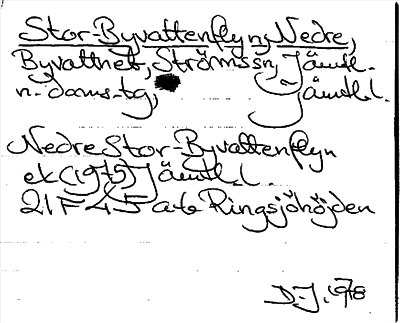 Stor-Byvattenflyn, Nedre,
Byvattnet, Strömssn, Jämtl.
n. doms-tg, Jämtl.l.
Nedre Stor-Byvattenflyn
ek (1975) Jämtl.l
21F 4-5 a-b Ringsjöhöjden
D.J. 1978